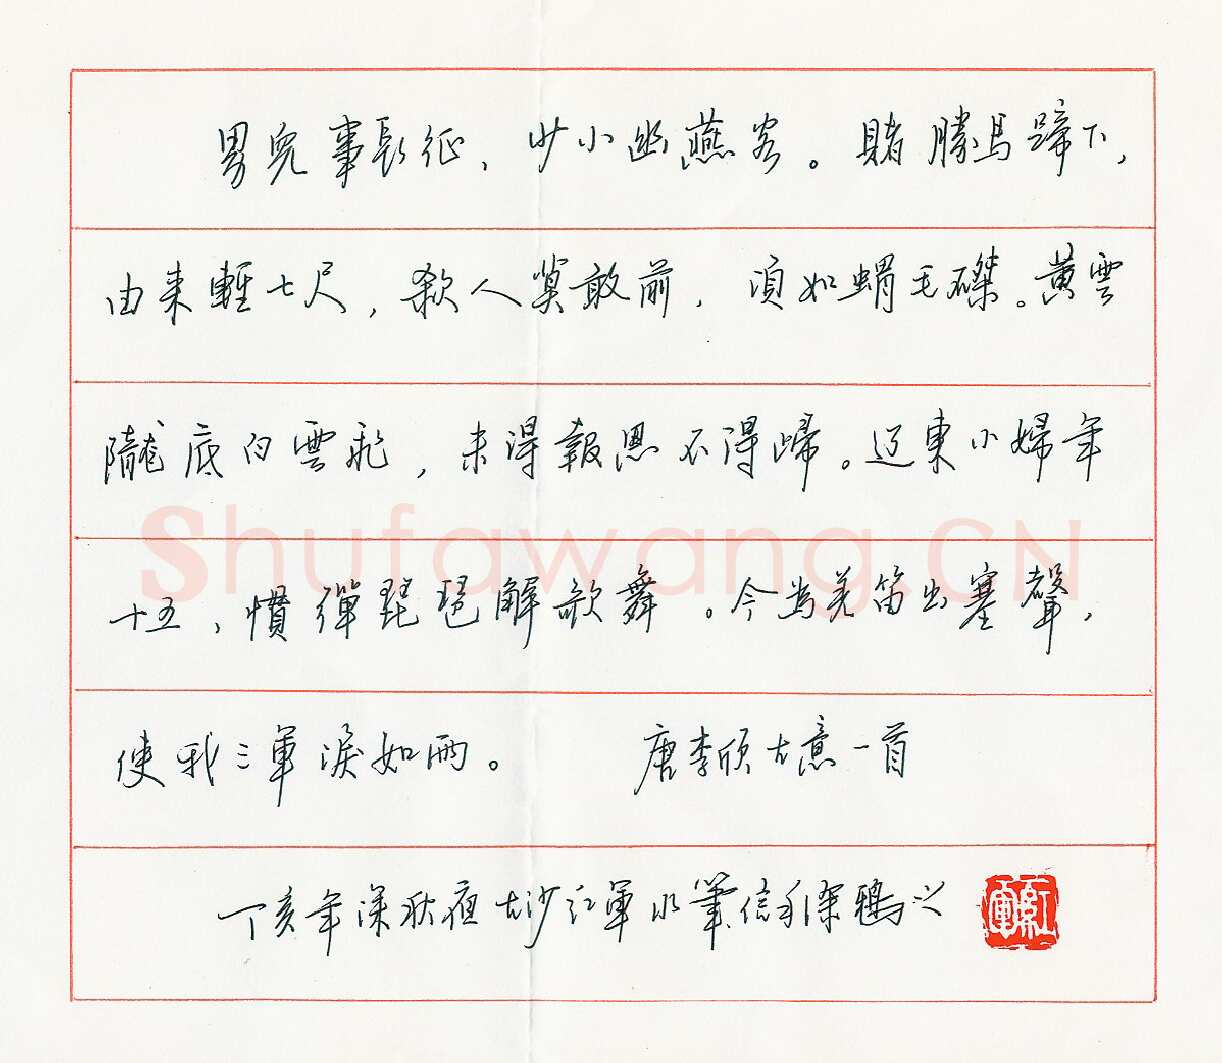 男兒事長征、少小幽燕客。賭勝馬蹄下，
由来輕七尺，殺人莫敢前，須如蝟毛磔。黄雲
隴底白雲飛，未得報恩不得歸。辽東小婦年
十五，慣彈琵琶解歌舞。今为羌笛出塞聲，
Shufawang.CN
使我三軍淚如雨。 唐李颀古意一首
丁亥年深秋夜古沙红軍水筆信手涂鴉之
紅軍